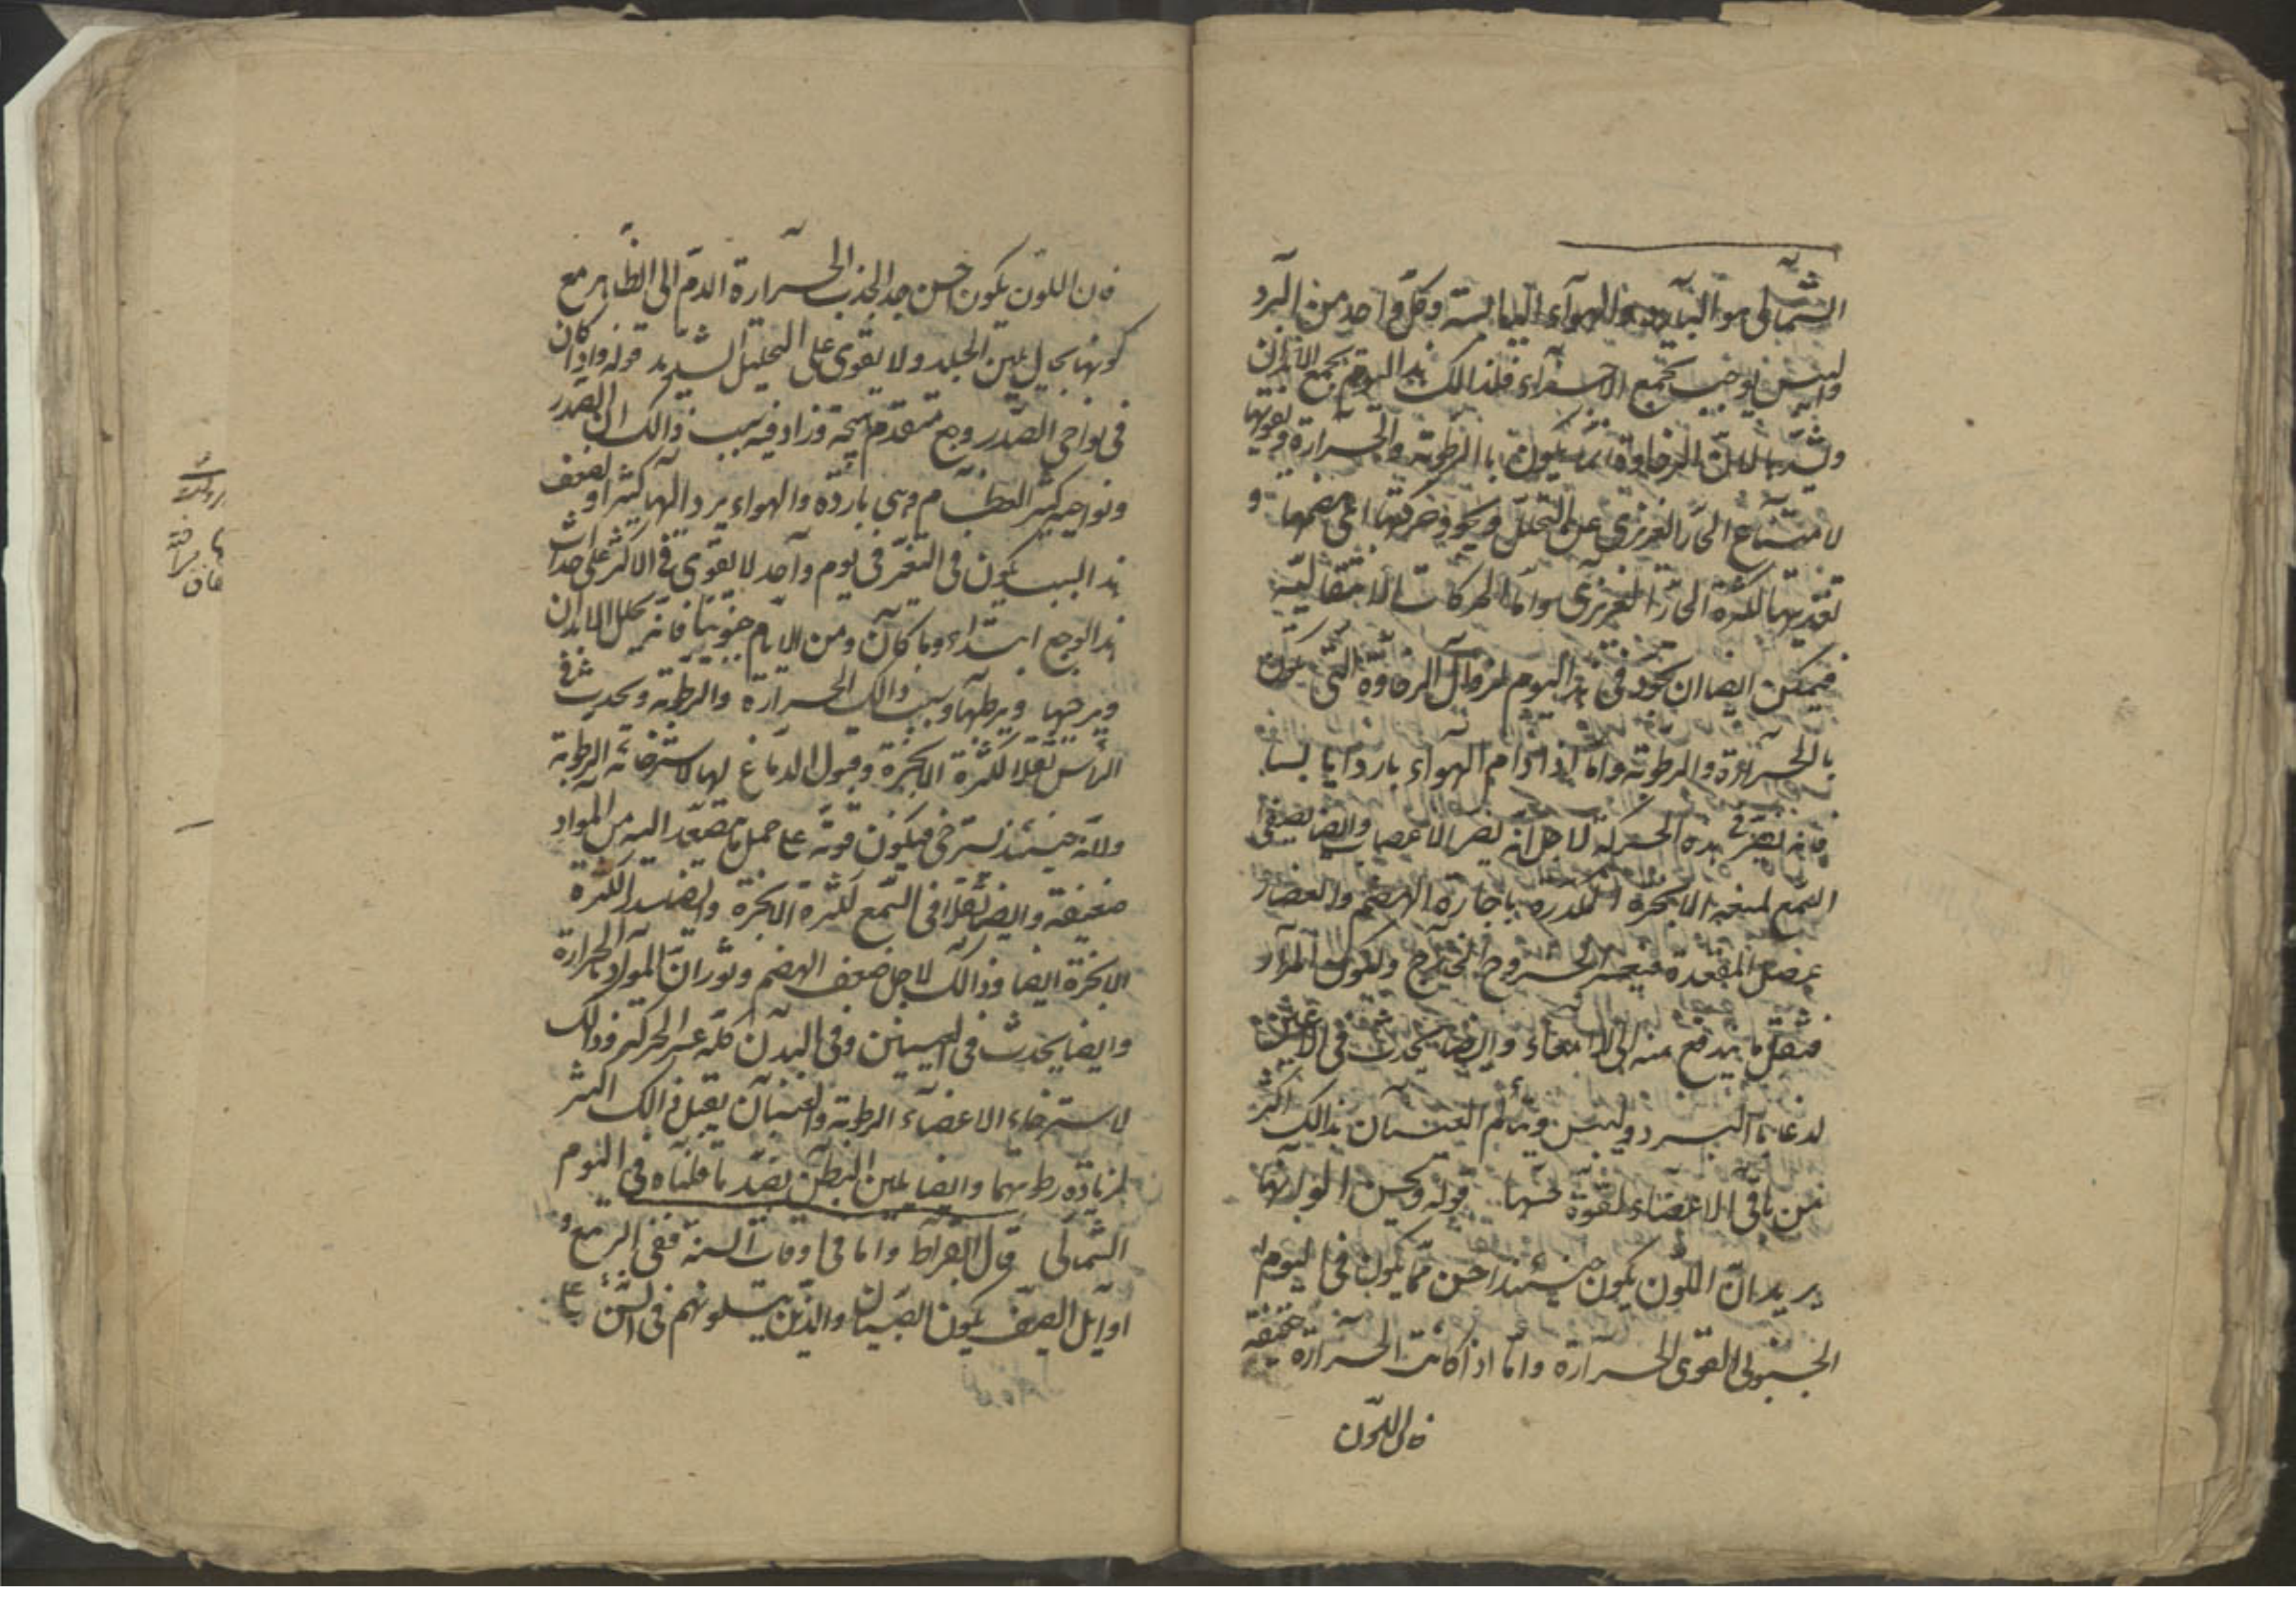 الشمالى هو البارد والهواء اليابسة وكل واحد من البرد
واليبس يوجب تجمع الاجزاء فلذالك هذا اليوم يجمع الابدان
ويشدها لان الرخاوة انما يكون بالرطوبة والحرارة ويقويها
لامتناع الحار الغريزى عن التحلل ويجود حركتها اعنى هضمها و
تغذيتها لكثرة الحار الغريزى واما الحركات الانتقالية
فيمكن ايضا ان يجود فى هذا اليوم لزوال الرخاوة التى يكون
بالحرارة والرطوبة واما اذا دام الهواء باردا يابسا
فانه يضر فى هذه الحركة لاجل انه يضر الاعصاب وايضا يصفى
السمع لمنعه الابخرة المكدره باجادة الهضم والعضار
عضل المقعدة فيعسر الخروج الخارج ولكون المرار
فيقل ما يندفع منه الى الامعاء وايضا يحدث فى الاعين
لدغا بالبرد واليبس ويتألم العينان بذالك اكثر
من باقى الاعضاء لقوة حسها قوله ويحسن الوانها
يريد ان اللون يكون حينئذ احسن مما يكون فى اليوم
الجنوبى القوى الحرارة واما اذا كانت الحرارة خفيفة
فان اللون
فان اللون يكون احسن جدا لجذب الحرارة الدم الى الظاهر مع
كونها بحال يلين الجلد ولا يقوى على التحليل الشديد قوله واذا كان
فى نواحى الصدر وجع متقدم هيجه وزاد فيه سبب ذالك ان الصدر
ونواحيه كثير العظام وهى باردة والهواء يرد اليها كثيرا ولضعف
هذا السبب يكون فى التغير فى يوم واحد لا يقوى فى الاكثر على احداث
هذا الوجع ابتداء وما كان ومن الايام جنوبيا فانه يحلل الابدان
ويرخيها ويرطبها وسبب ذالك الحرارة والرطوبة ويحدث فى
الرأس ثقلا لكثرة الابخرة وقبول الدماغ لها لاسترخائه الرطوبة
ولانه حينئذ يسترخى فيكون قوته على حمل ما يتصعد اليه من المواد
ضعيفة وايضا ثقلا فى السمع لكثرة الابخرة لكثرة
الابخرة ايضا وذالك لاجل ضعف الهضم وثوران المواد بالحرارة
وايضا يحدث فى العينين وفى البدن كله عسر الحركة وذالك
لاسترخاء الاعضاء الرطوبة والعينان يقبل ذالك اكثر
لزيادة رطوبتهما وايضا يلين البطن بضد ما قلناه فى اليوم
الشمالى قال ابقراط واما فى اوقات السنة ففى الربيع و
اوائل الصيف يكون الصبيان والذين يتلونهم فى السن على